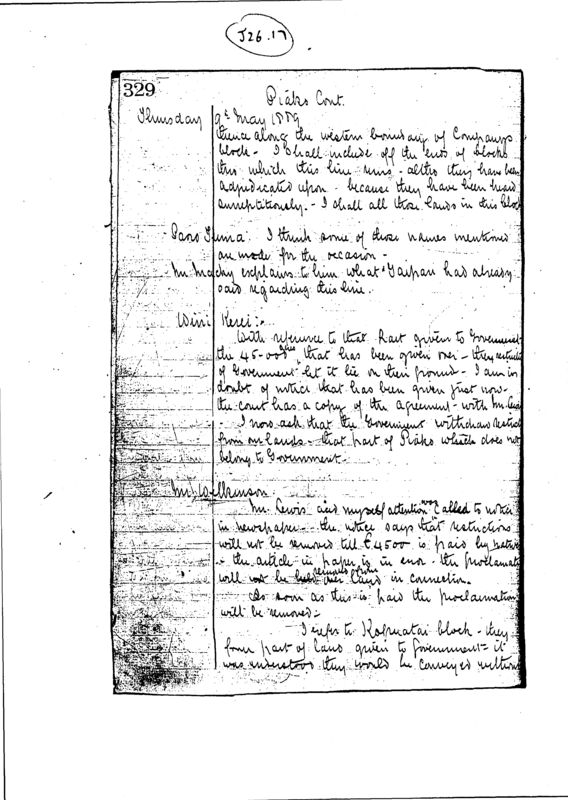 J26.17
329
Piako Cont.
Thursday 9th May 1889
thence along the western boundary of Company's
block - I shall include off the ends of blocks
thro which this line runs - altho they have been
adjudicated upon - because they have been heard
surreptitiously. - I shall all those lands in this block
I think some of those names mentioned
are made for the occasion -
Mr explains to him what had already
said regarding this line.
Wini Kerei :-
With reference to that Part given to Government
the 45.000 acres, that has been given over - they
of Government let it lie on their ground - I am in
doubt of notice that has been given just now -
the court has a copy of the agreement - with Mr Lewis
- I now ask that the Government withdraw
from our lands - that part of Piako which does not
belong to Government -
Mr Wilkinson
Mr Lewis and myself attention was called to notice
in newspaper - the notice says that restrictions
will not be removed till £4500 is paid by
- the article in paper is in error - the
will be removed from land in connection.
As soon as this is paid the proclamation
will be removed -
I refer to Kopuatai block - they
form part of land given to Government - it
was understood they would be conveyed without